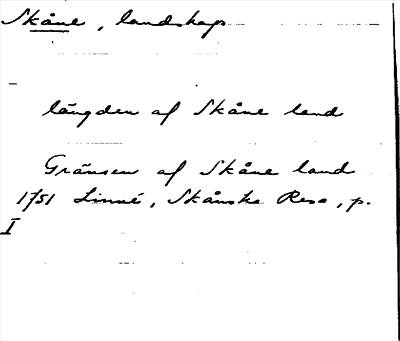 Skåne, landskap
längden af Skåne land
Gränsen af Skåne land
1751 Linné, Skånska Resa, p.
I